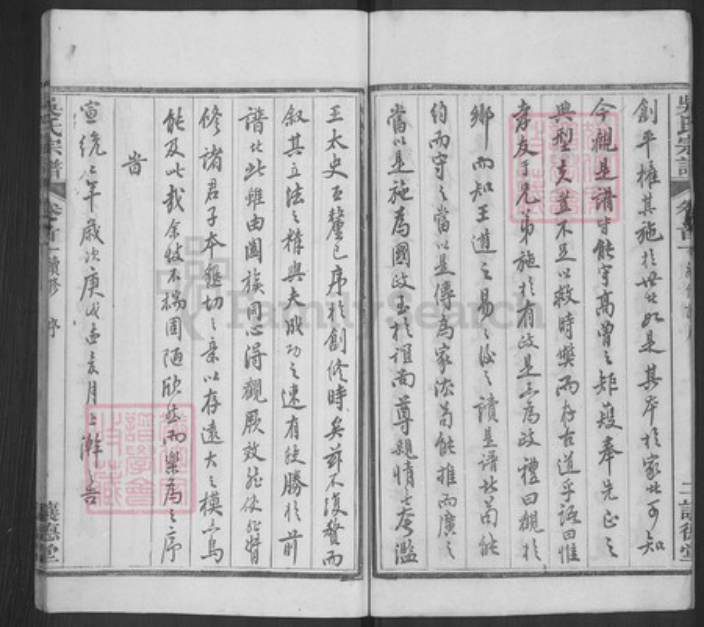 創平權其施於世此如是其本於家此可知
今觀是譜皆能守高曾之矩矱奉先正之
典型夫豈不足以救時弊而存古道乎語曰惟
孝友于兄弟施於有政是亦為政禮曰觀於
鄉而知王道之易之後之讀是譜者苟能
約而守之當以是傳為家法苟能推而廣之
當以是施為國政至於誼尚尊親情
王太史百釐已序於創修時矣茲不復贅而
叙其立法之精與夫成功之速有從勝於前
譜此此雖由闔族同心得觀厥效然使非督
修諸君子本親切之義以存遠大之模亦烏
能及此哉余故不揣固陋欣然而樂為之序
峕
宣統二年歲次庚戌孟亥月上澣 吉
吳氏宗譜
卷首一 續修 序
FamilySearch